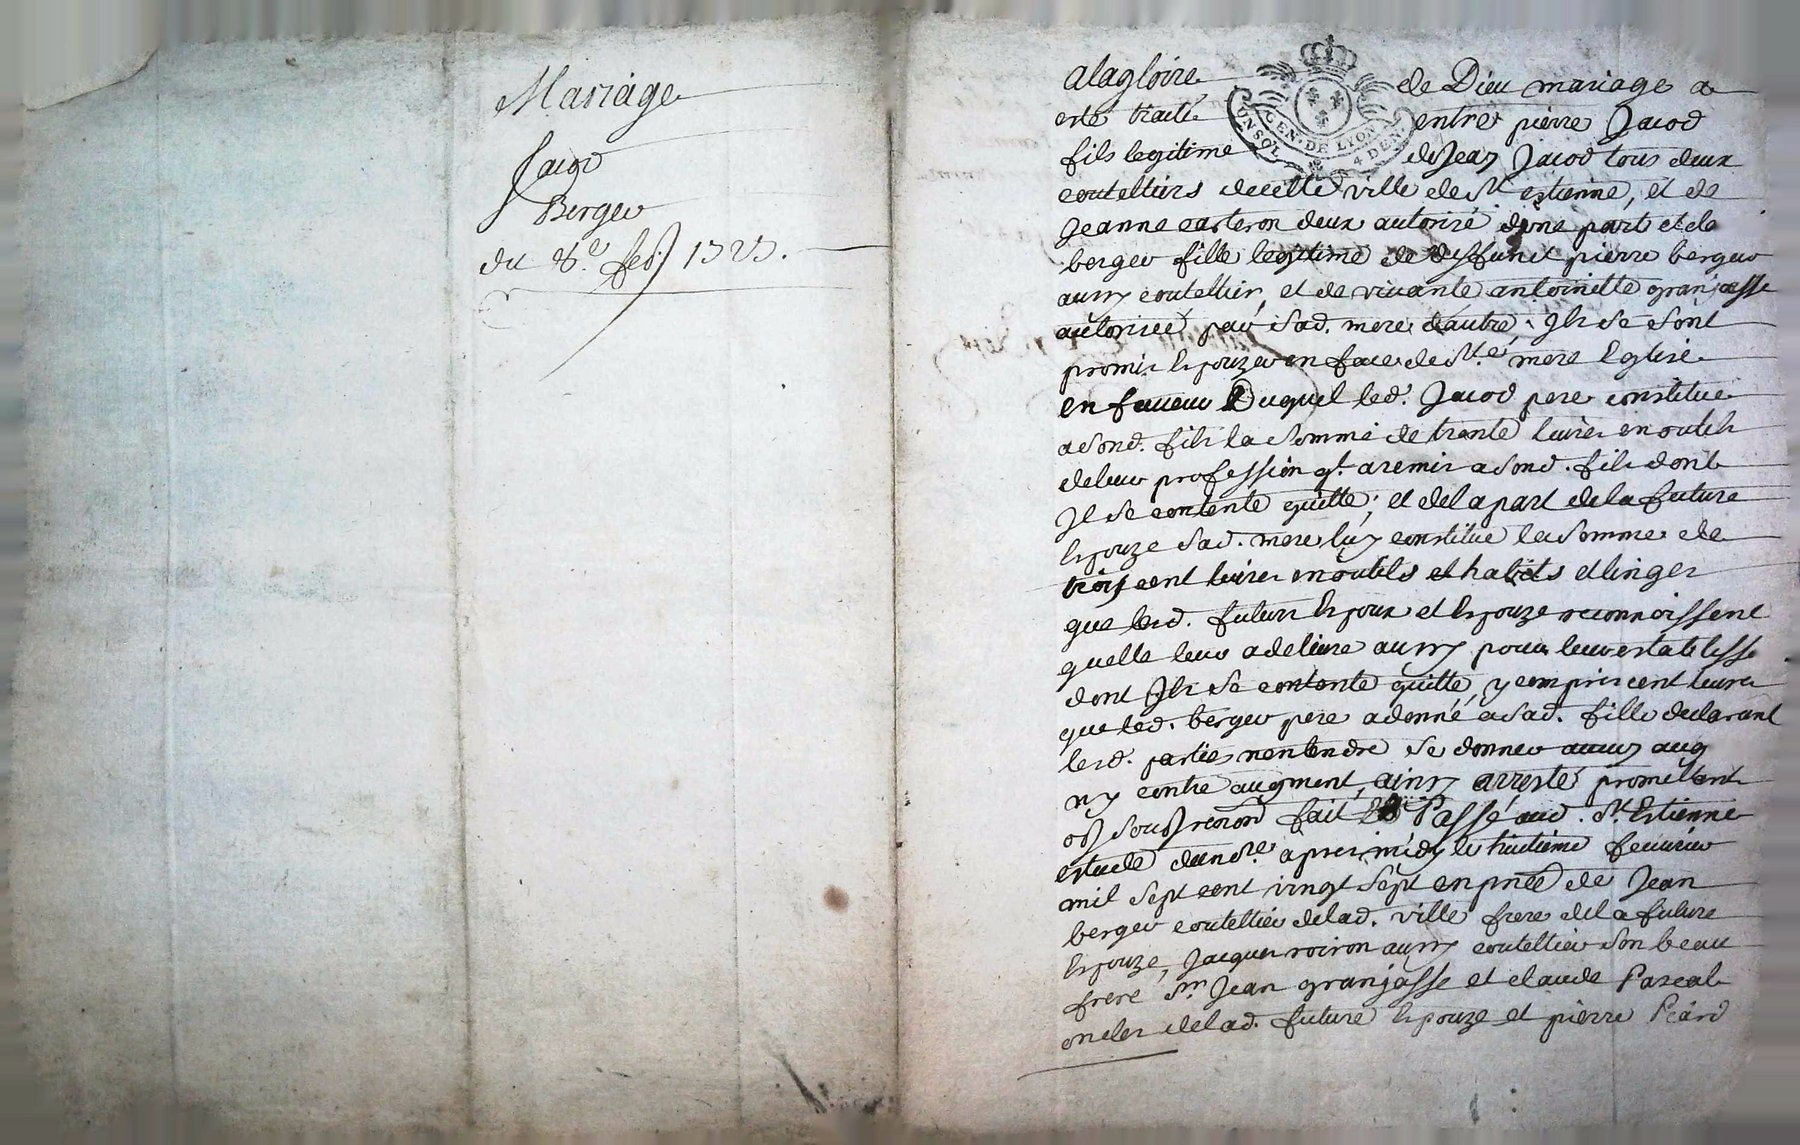 Mariage
Jacod
Berger
du 8e feb. 1727.
a la gloire de Dieu mariage a
esté traité entre pierre Jacod
fils legitime de Jean Jacod tous deux
couteliers de cette ville de St estienne, et de
Jeanne carteron deux autorisé dune part et de
berger fille legitime de deffunct pierre berger
aussy coutellier, et de vivante antoinette granjasse
autorisée par sad. mere dautre, Ils se sont
promis Espouzer en face de Ste mere Eglise
en faveur Duquel led. Jacod pere constitue
a sond. fils la somme de trente livres en outils
de leur profession qt. a remis a sond. fils dont
Il se contente quitte; et de la part de la future
Espouze sad. mere luy constitue la somme de
trois cent livres en outils et habits et linges
que lesd. futurs Espoux et Espouze reconnoissent
quelle leur a delivré aussy pour leur
dont Ils se contente quitte, y compris cent livres
que led. berger pere a donné a sad. fille declarant
lesd. parties nentendre se donner aucun aug
ny contre augment, ainsy arresté promettant
obf soubf renond fait Et Passé aud. St. Estienne
estude dun ore apres midy le huitieme fevrier
mil sept cent vingt sept en pnce de Jean
berger coutellier de lad. ville frere de la future
Espouze, Jacques roiron aussy coutellier son beau
frere Sr. Jean granjasse et claude Pascal
oncles de lad. future Espouze et pierre Picard
GEN. DE LYON
UN SOL 4 DEN